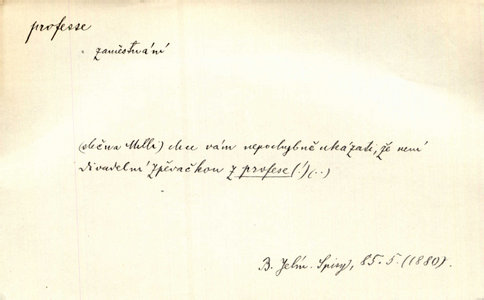 professe
zaměstnání
(slečna Mella) chce vám nepochybně ukázati, že není
divadelní zpěvačkou z profese (!) (..)
B. Jelín. Spisy, 85. 5. (1880).